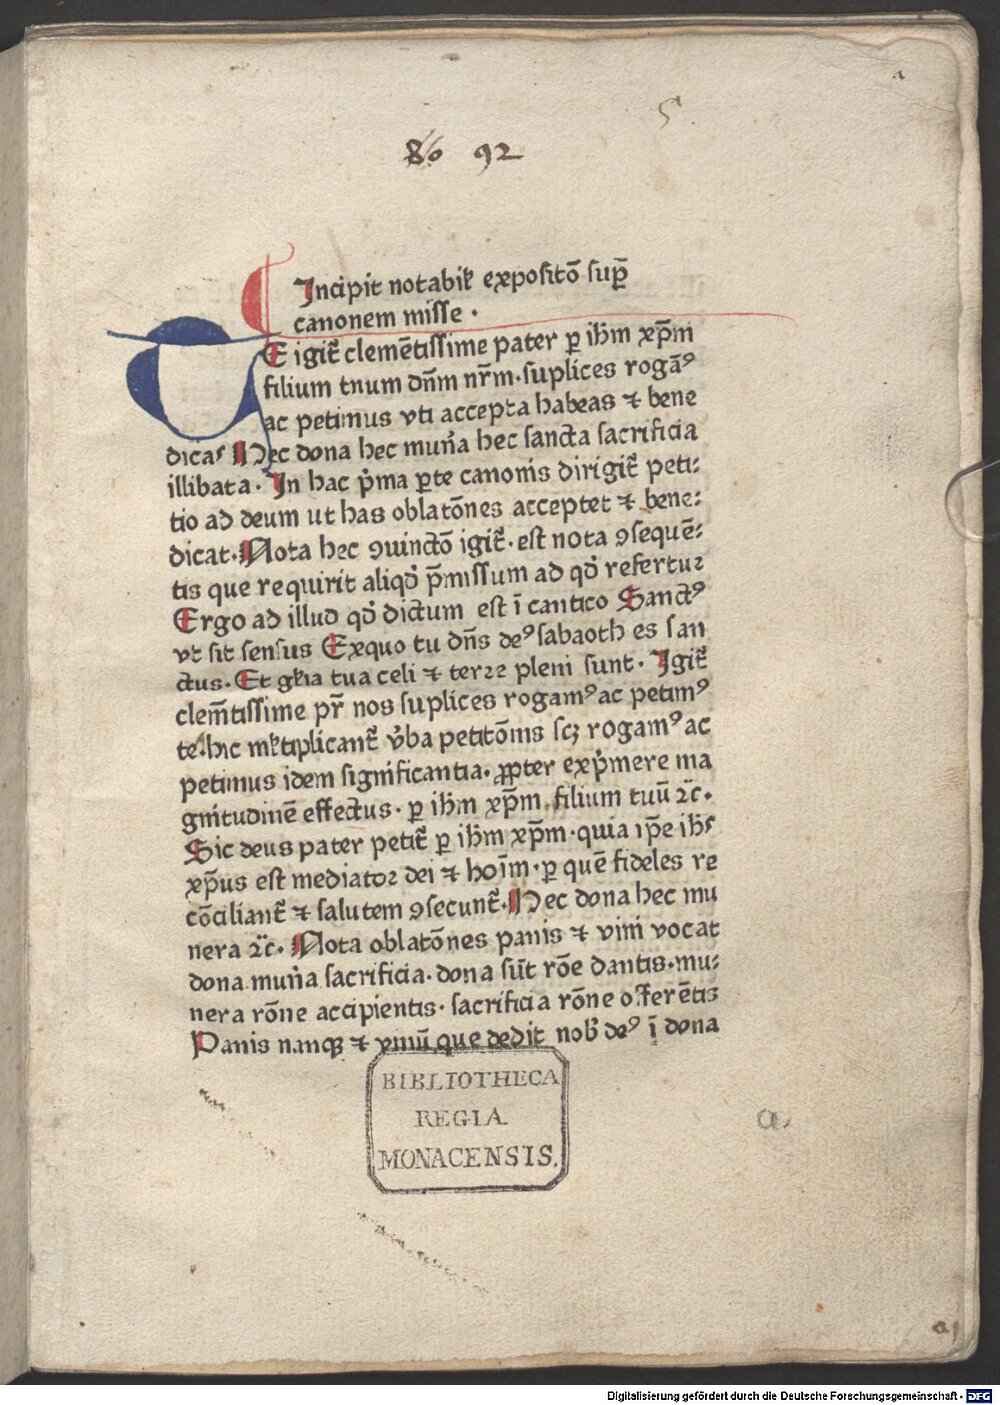 a
5
86 92
Incipit notabil᷒ expositō sup̄
canonem misse .
TE igit̄ clemētissime pater ꝑ ih̄m xp̄m
filium tuum dn̄m nr̄m . suplices rogaꝰ
ac petimus vti accepta habeas ⁊ bene
dicas Hec dona hec mun̄a hec sancta sacrificia
illibata . In hac p̓ma ꝑte canonis dirigit̄ peti⸗
tio ad deum ut has oblatōnes acceptet ⁊ bene⸗
dicat . Nota hec ꝯiunctō igit̄ . est nota ꝯsequē⸗
tis que requirit aliqd̓ p̄missum ad qd̓ refertur
Ergo ad illud qd̓ dictum est ī cantico Sanctꝰ
vt sit sensus Exquo tu dn̄s deꝰ sabaoth es san
ctus . Et gl̓ia tua celi ⁊ terre pleni sunt . Igit̄
clem̄tissime pr̄ nos suplices rogamꝰ ac petimꝰ
te . hic ml̓tiplicant̄ v̓ba petitōnis scꝫ rogamꝰ ac
petimus idem significantia . ꝓpter exp̓mere ma
gnitudinē effectus . ꝑ ih̄m xp̄m . filium tuū ⁊c̄ .
Sic deus pater petit̄ ꝑ ih̄m xp̄m . quia ip̄e ih̄s
xp̄us est mediator dei ⁊ hoīm . ꝑ quē fideles re
cōciliant̄ ⁊ salutem ꝯsecunt̄ . Hec dona hec mu
nera ⁊c̄ . Nota oblatōnes panis ⁊ vini vocat
dona mun̄a sacrificia . dona sūt rōe dantis . mu⸗
nera rōne accipientis . sacrificia rōne offerētis
Panis nanqꝫ ⁊ vinū que dedit nob̓ deꝰ ī dona
BIBLIOTHECA
REGIA
MONACENSIS.
a.
a j
Digitalisierung gefördert durch die Deutsche Forschungsgemeinschaft - DFG